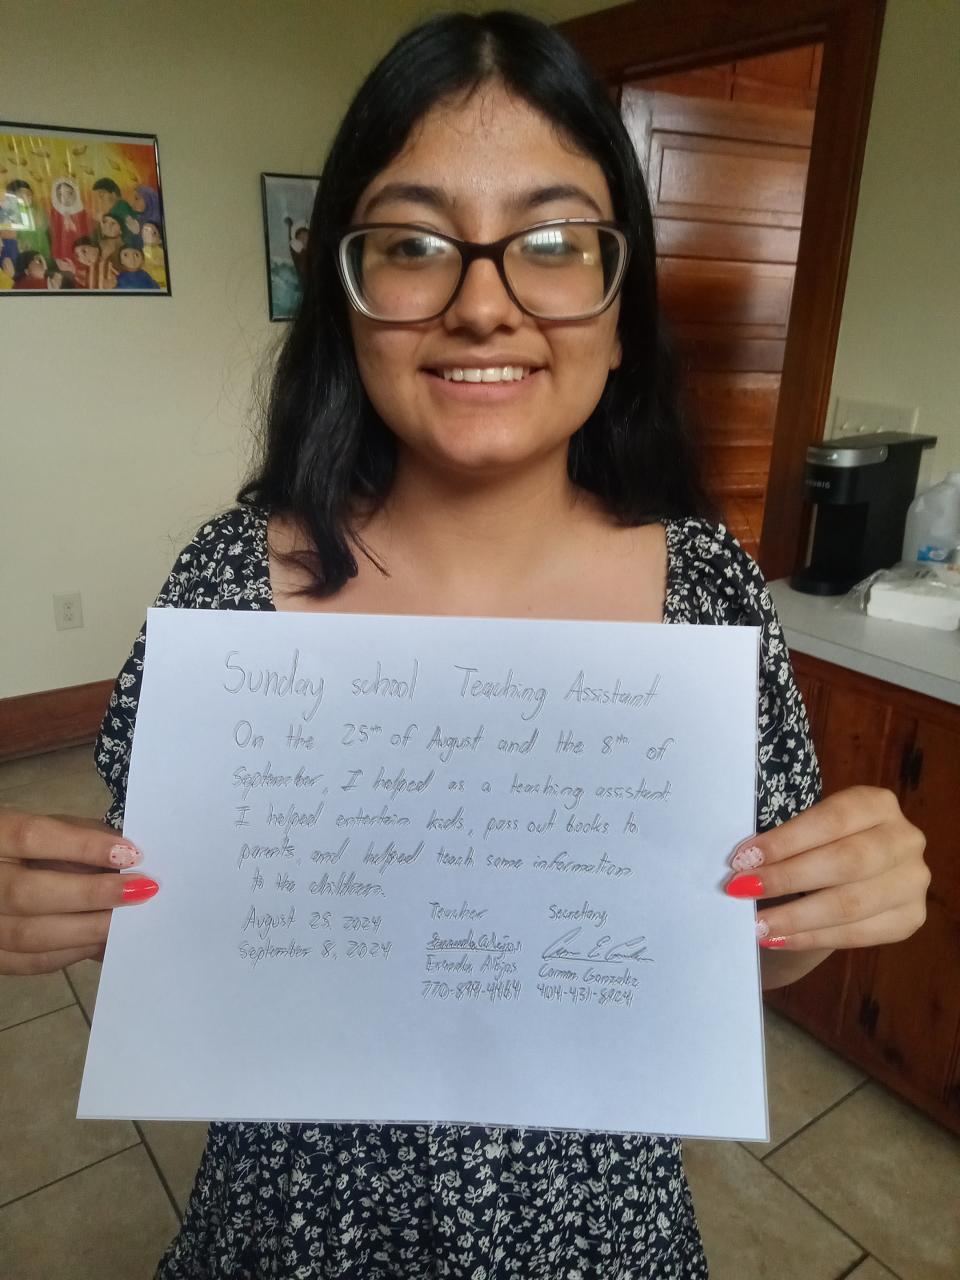 Sunday school Teaching Assistant
On the 25th of August and the 8th of
September, I helped as a teaching assistant.
I helped entertain kids, pass out books to
parents, and helped teach some information
to the children.
August 25, 2024
September 8, 2024
Teacher Secretary
Alejos
Carmen Gonzalez
404-431-8924
KEURIG